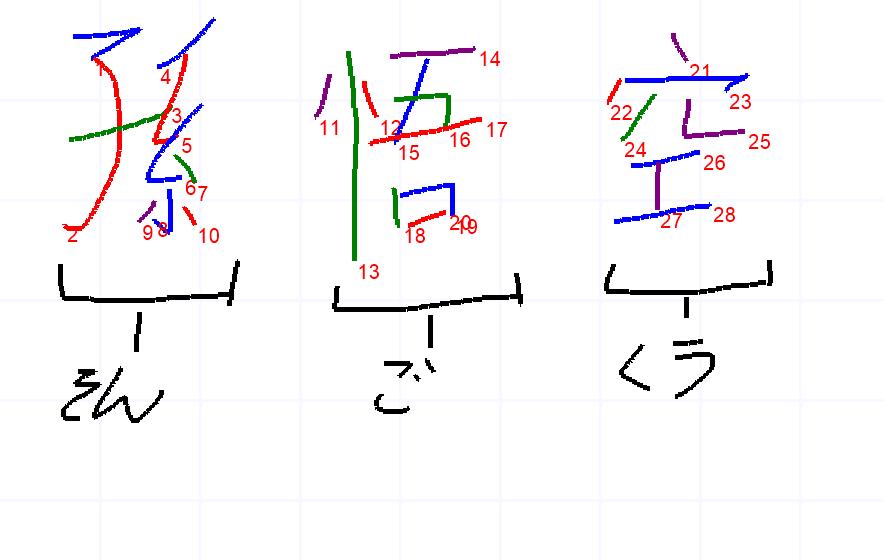 孫悟空
1 2 3 4 5 6 7 8 9 10 11 12 13 14 15 16 17 18 19 20 21 22 23 24 25 26 27 28
そん ご くう